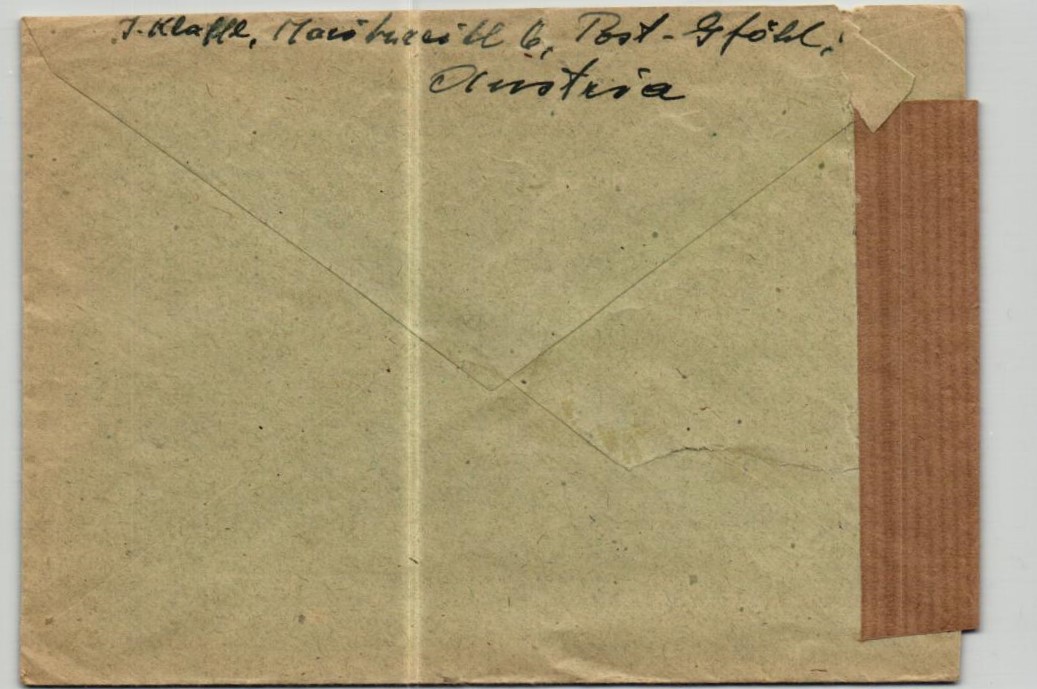 J. Klaffl, 6, Post-Gföhl,
Austria